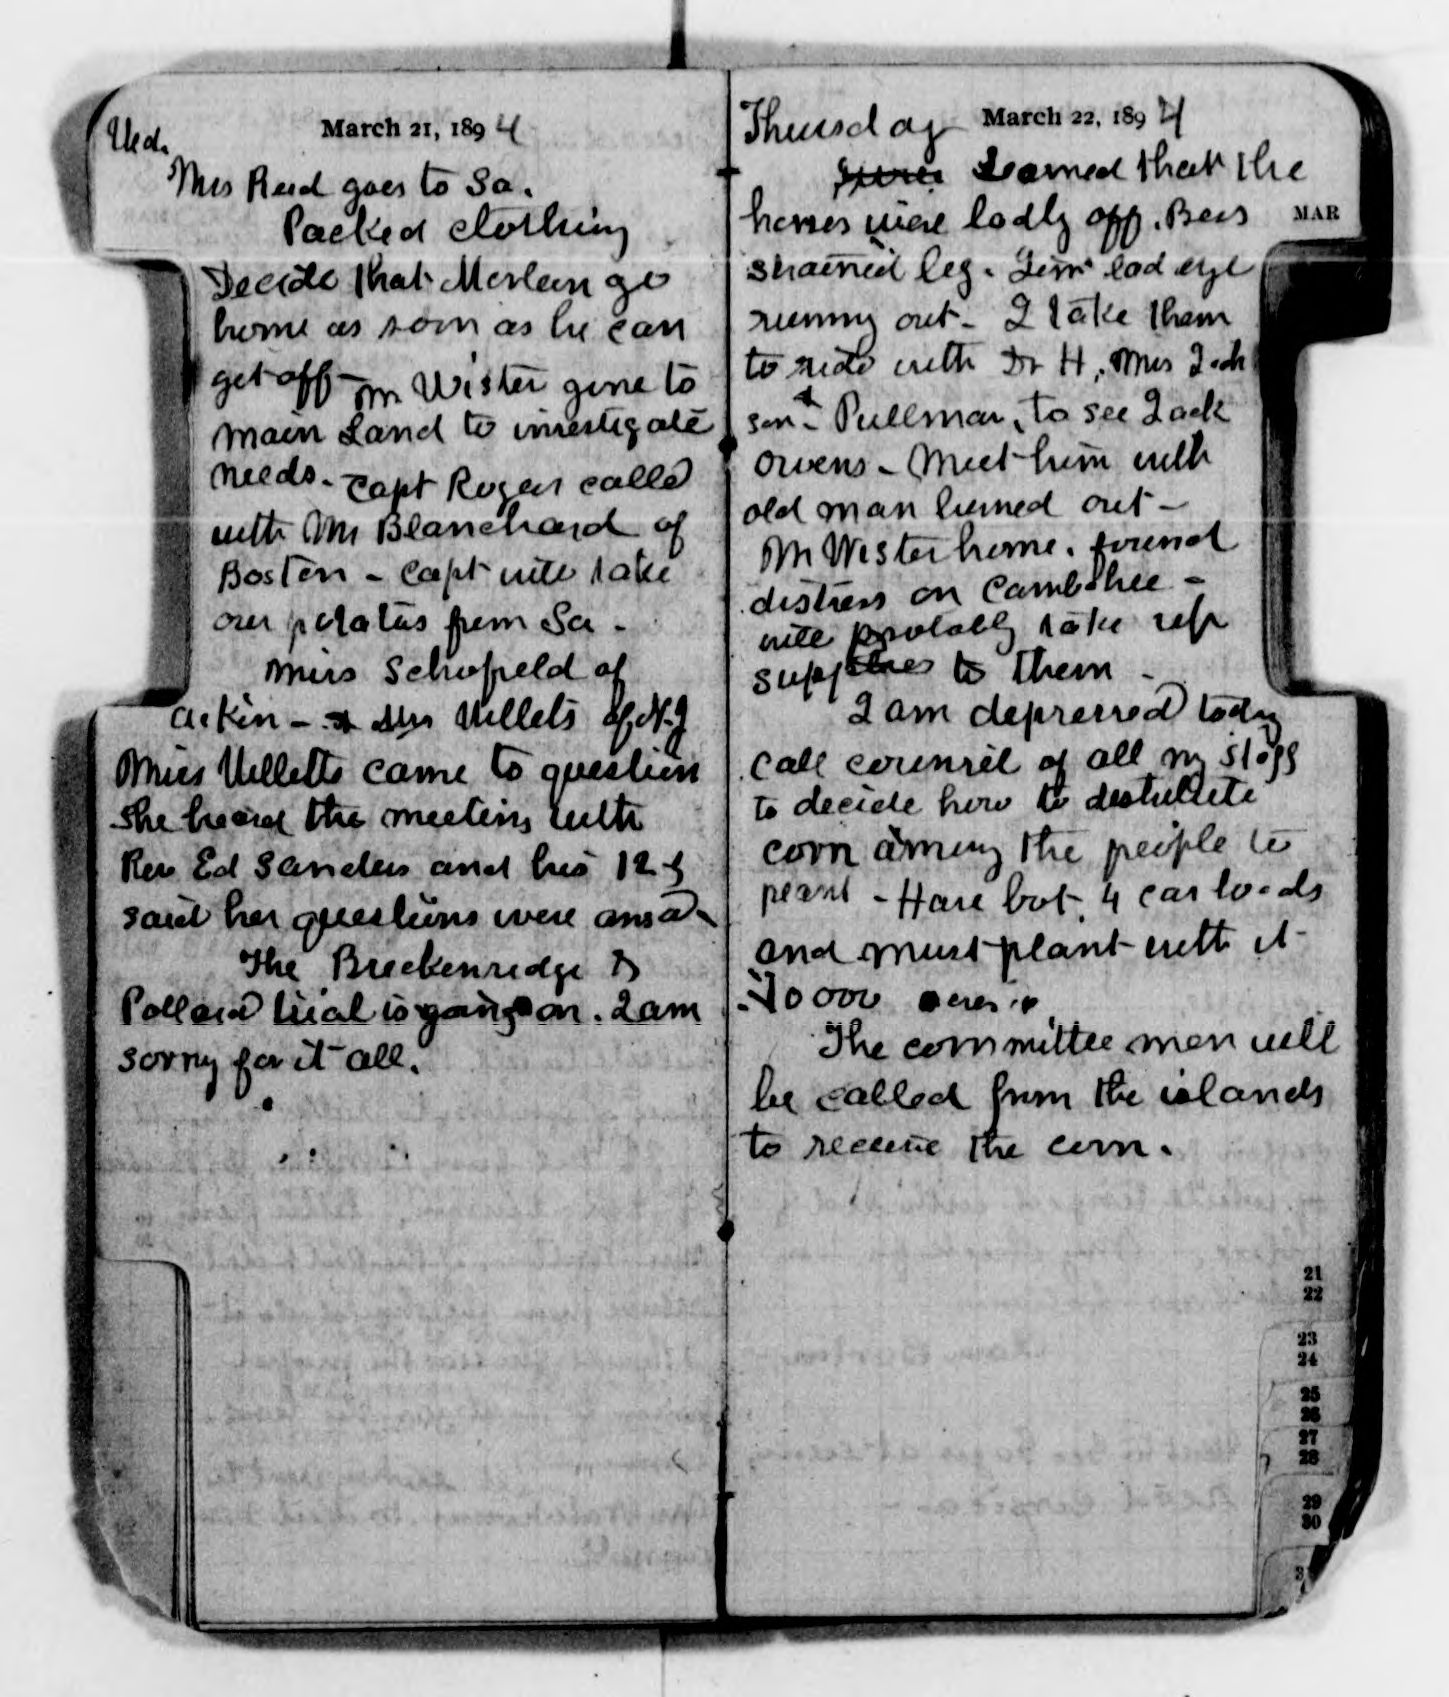 Wed. March 21, 1894
Mrs Reed goes to Sa.
Packed clothing
Decide that Morlan go
home as soon as he can
get off - Mr Wister gone to
main Land to investigate
needs. Capt Rogers called
with Mr Blanchard of
Boston - Capt will take
our potatoes from Sa -
Miss Schofield of
Aikin - & Mrs Willets of N.J
Miss Willetts came to question
She heard the meeting with
Rev Ed Sanders and his 12 &
said her questions were ansd.
The Breckenridge &
Pollard trial is going on. I am
sorry for it all.
Thursday March 22, 1894
Learned that the
horses were badly off. Bess
strained leg. Jim bad eye
running out - I take them
to ride with Dr H, Mrs Jack
son & Pullman, to see Jack
Owens - Meet him with
old man burned out -
Mr Wister home. found
distress on Combahee -
will probably take
supplies to them -
I am depressed today
call council of all my staff
to decide how to distribute
corn among the people to
plant - Have bot. 4 car loads
and must plant with it
10 000 acres
The committee men will
be called from the islands
to receive the corn.
MAR
21
22
23
24
25
26
27
28
29
30
31